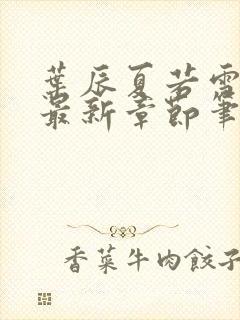 葉辰夏若雪
最新章節筆
香菜牛肉餃子